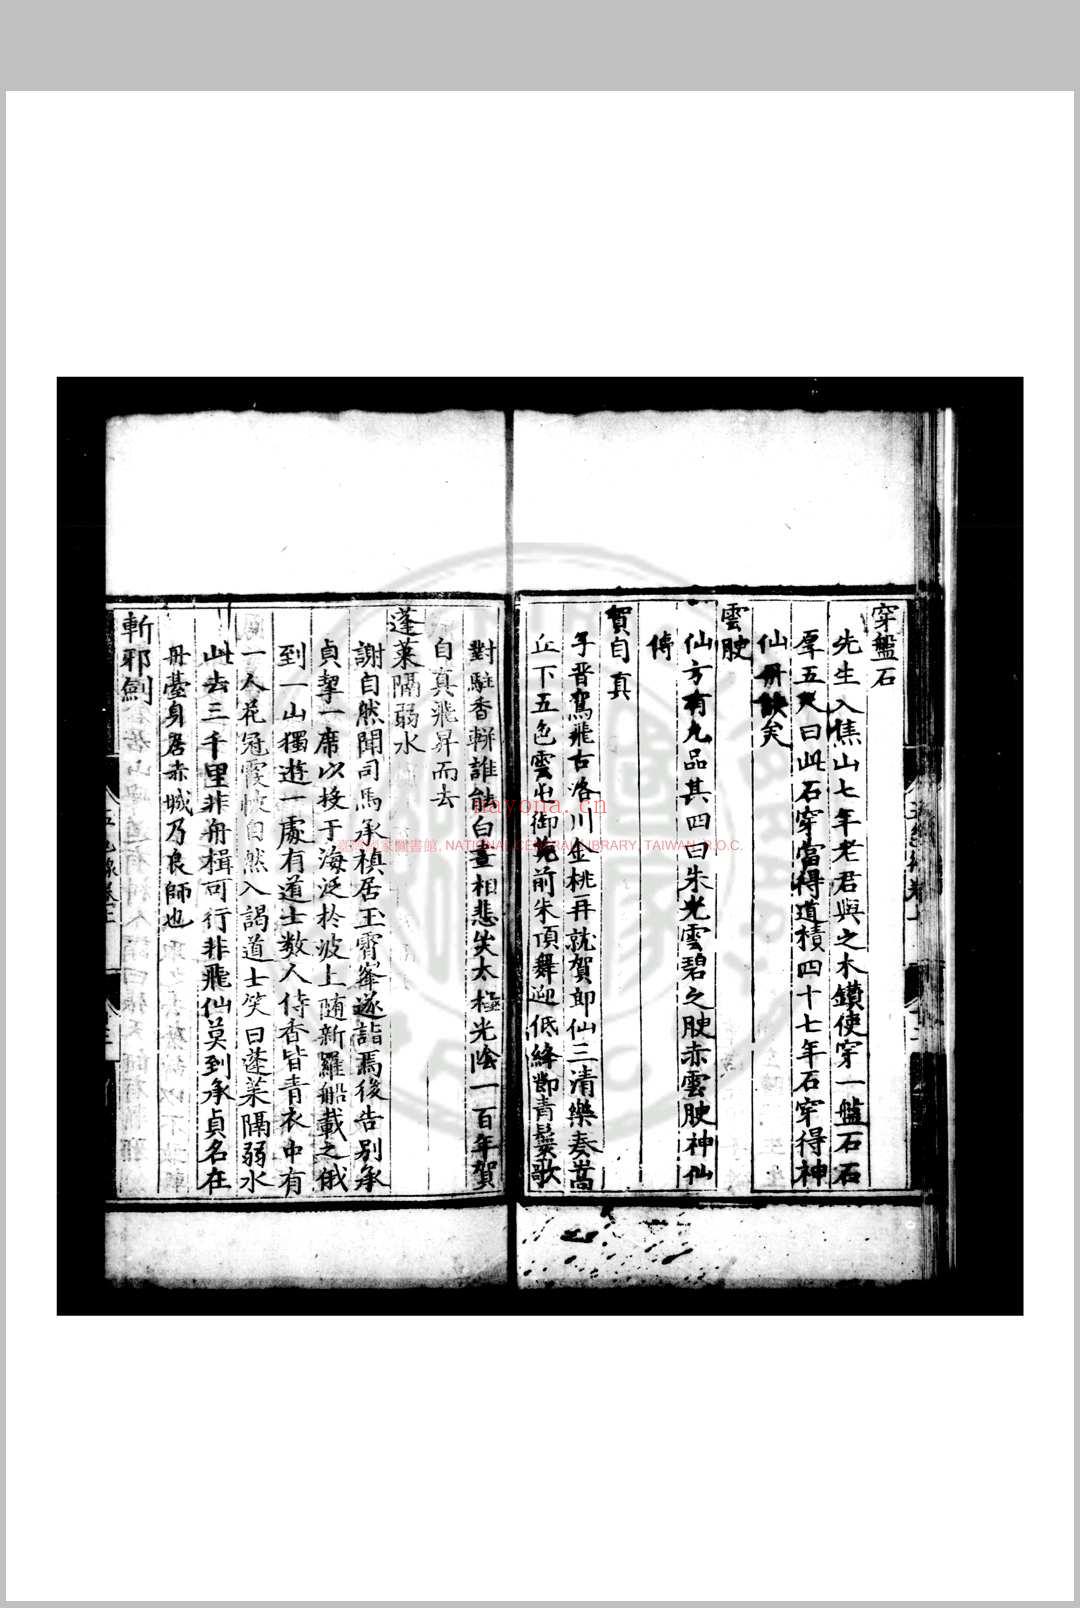 穿盤石
先生入焦山七年老君與之木鑽使穿一盤石石
厚五尺曰此石穿當得道積四十七年石穿得神
仙丹訣矣
雲腴
仙方有九品其四曰朱光雲碧之腴赤雲腴神仙
傳
賀自真
子晋駕飛古洛川金桃再就賀郎仙三清樂奏嵩
丘下五色雲屯御苑前朱頂舞迎低絳節青鬟歌
對駐香輧誰能白晝相悲失太極光陰一百年賀
自真飛昇而去
蓬萊隔弱水
謝自然聞司馬承楨居玉霄峯遂詣焉後告別承
貞挈一席以投于海泛於波上随新羅船載之俄
到一山獨遊一處有道士数人侍香皆青衣中有
一人花冠霞帔自然入謁道士笑曰蓬萊隔弱水
此去三千里非舟楫可行非飛仙莫到承貞名在
丹臺身居赤城乃良師也
斬邪劍
nayona.cn
國家圖書館, NATIONAL CENTRAL LIBRARY, TAIWAN, R.O.C.